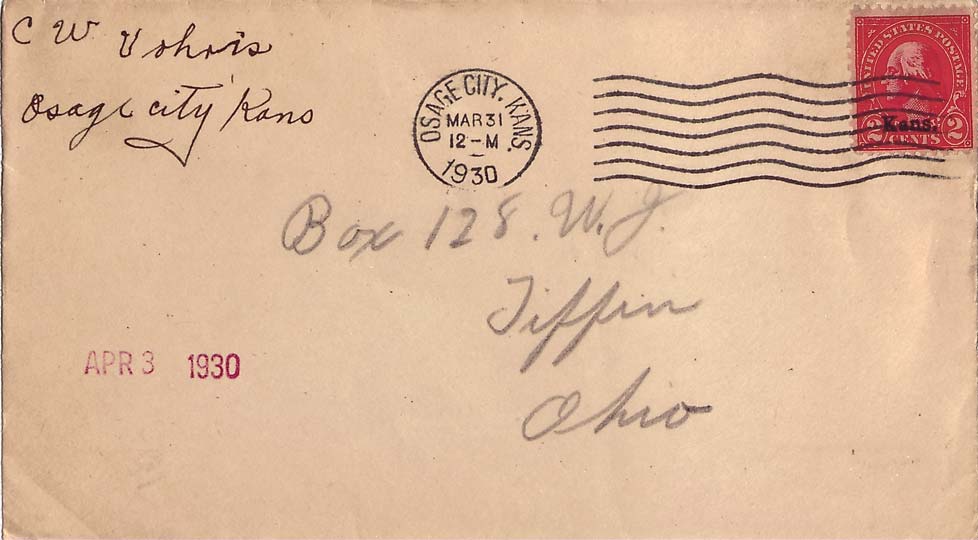 C W Vohris
Osage city Kans
OSAGE CITY, KANS.
MAR 31
12-M
1930
UNITED STATES POSTAGE
Kans.
2 CENTS 2
Box 128. W. J.
Tiffin
Ohio
APR 3 1930